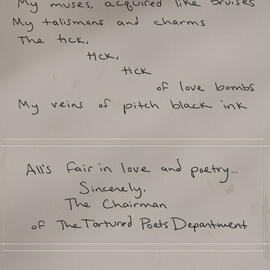 My muses, acquired like bruises
My talismans and charms
The tick,
tick,
tick
of love bombs
My veins of pitch black ink
All's fair in love and poetry...
Sincerely,
The Chairman
of The Tortured Poets Department